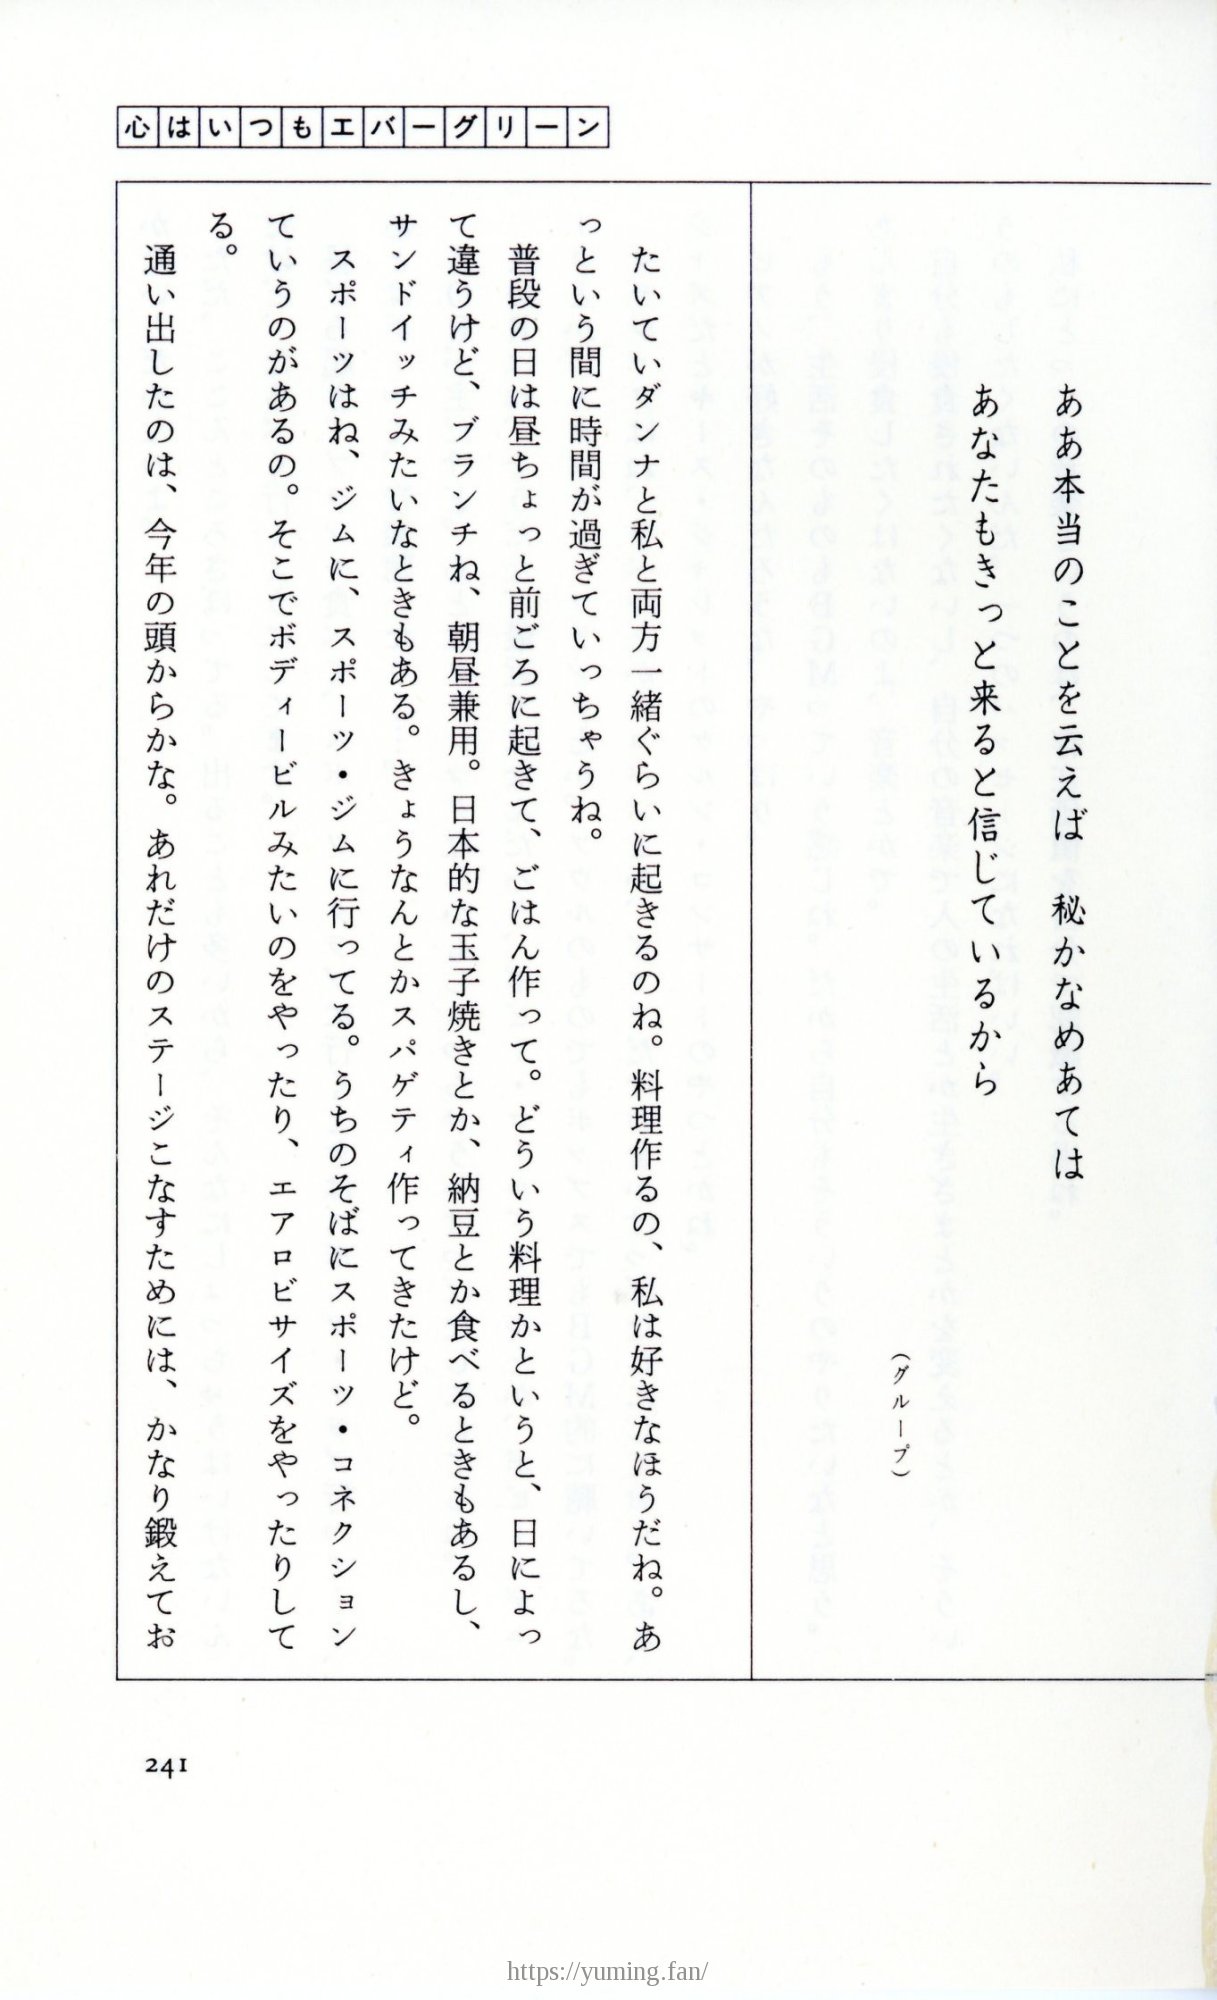 心はいつもエバーグリーン
ああ本当のことを云えば 秘かなめあては
あなたもきっと来ると信じているから
（グループ）
たいていダンナと私と両方一緒ぐらいに起きるのね。料理作るの、私は好きなほうだね。あ
っという間に時間が過ぎていっちゃうね。
普段の日は昼ちょっと前ごろに起きて、ごはん作って。どういう料理かというと、日によっ
て違うけど、ブランチね、朝昼兼用。日本的な玉子焼きとか、納豆とか食べるときもあるし、
サンドイッチみたいなときもある。きょうなんとかスパゲティ作ってきたけど。
スポーツはね、ジムに、スポーツ・ジムに行ってる。うちのそばにスポーツ・コネクション
ていうのがあるの。そこでボディービルみたいのをやったり、エアロビサイズをやったりして
る。
通い出したのは、今年の頭からかな。あれだけのステージこなすためには、かなり鍛えてお
241
https://yuming.fan/